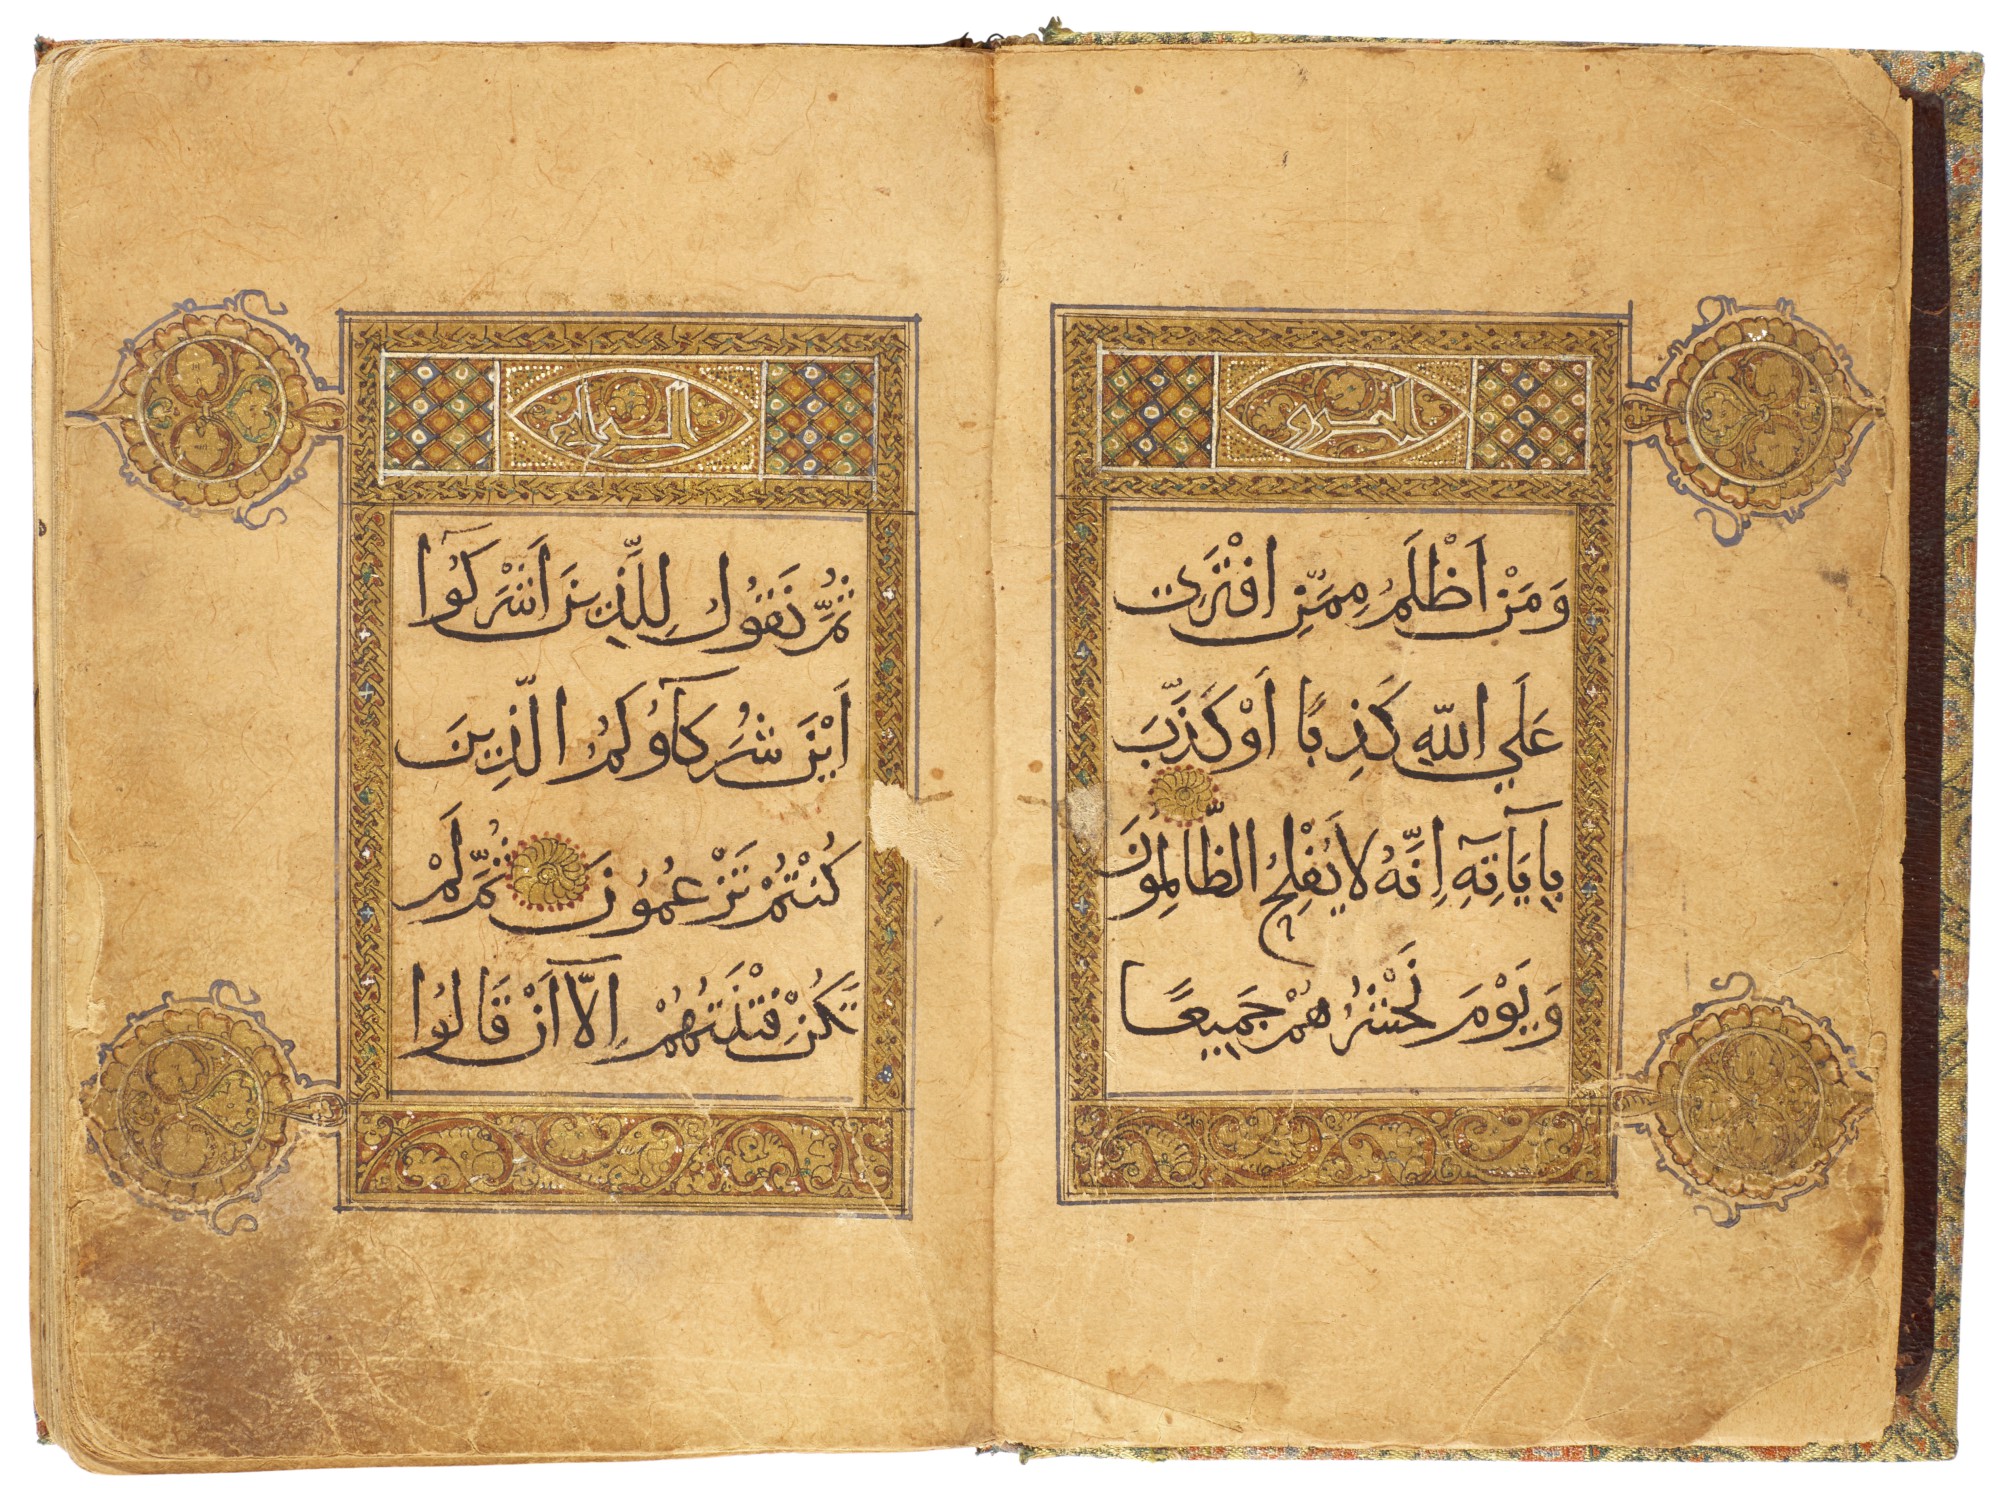 وَمَنْ اَظْلَمُ مِمَّنِ افْتَرَى
عَلَي اللّهِ كَذِبًا اَوْ كَذَّبَ
بِآيَاتِهِ اِنَّهُ لَا يُفْلِحُ الظَّالِمُونَ
وَيَوْمَ نَحْشُرُهُمْ جَمِيعًا
ثُمَّ نَقُولُ لِلَّذِينَ اَشْرَكُوٓا
اَيْنَ شُرَكَآؤُكُمُ الَّذِينَ
كُنْتُمْ تَزْعُمُونَ ثُمَّ لَمْ
تَكُنْ فِتْنَتُهُمْ اِلَّآ اَنْ قَالُوا